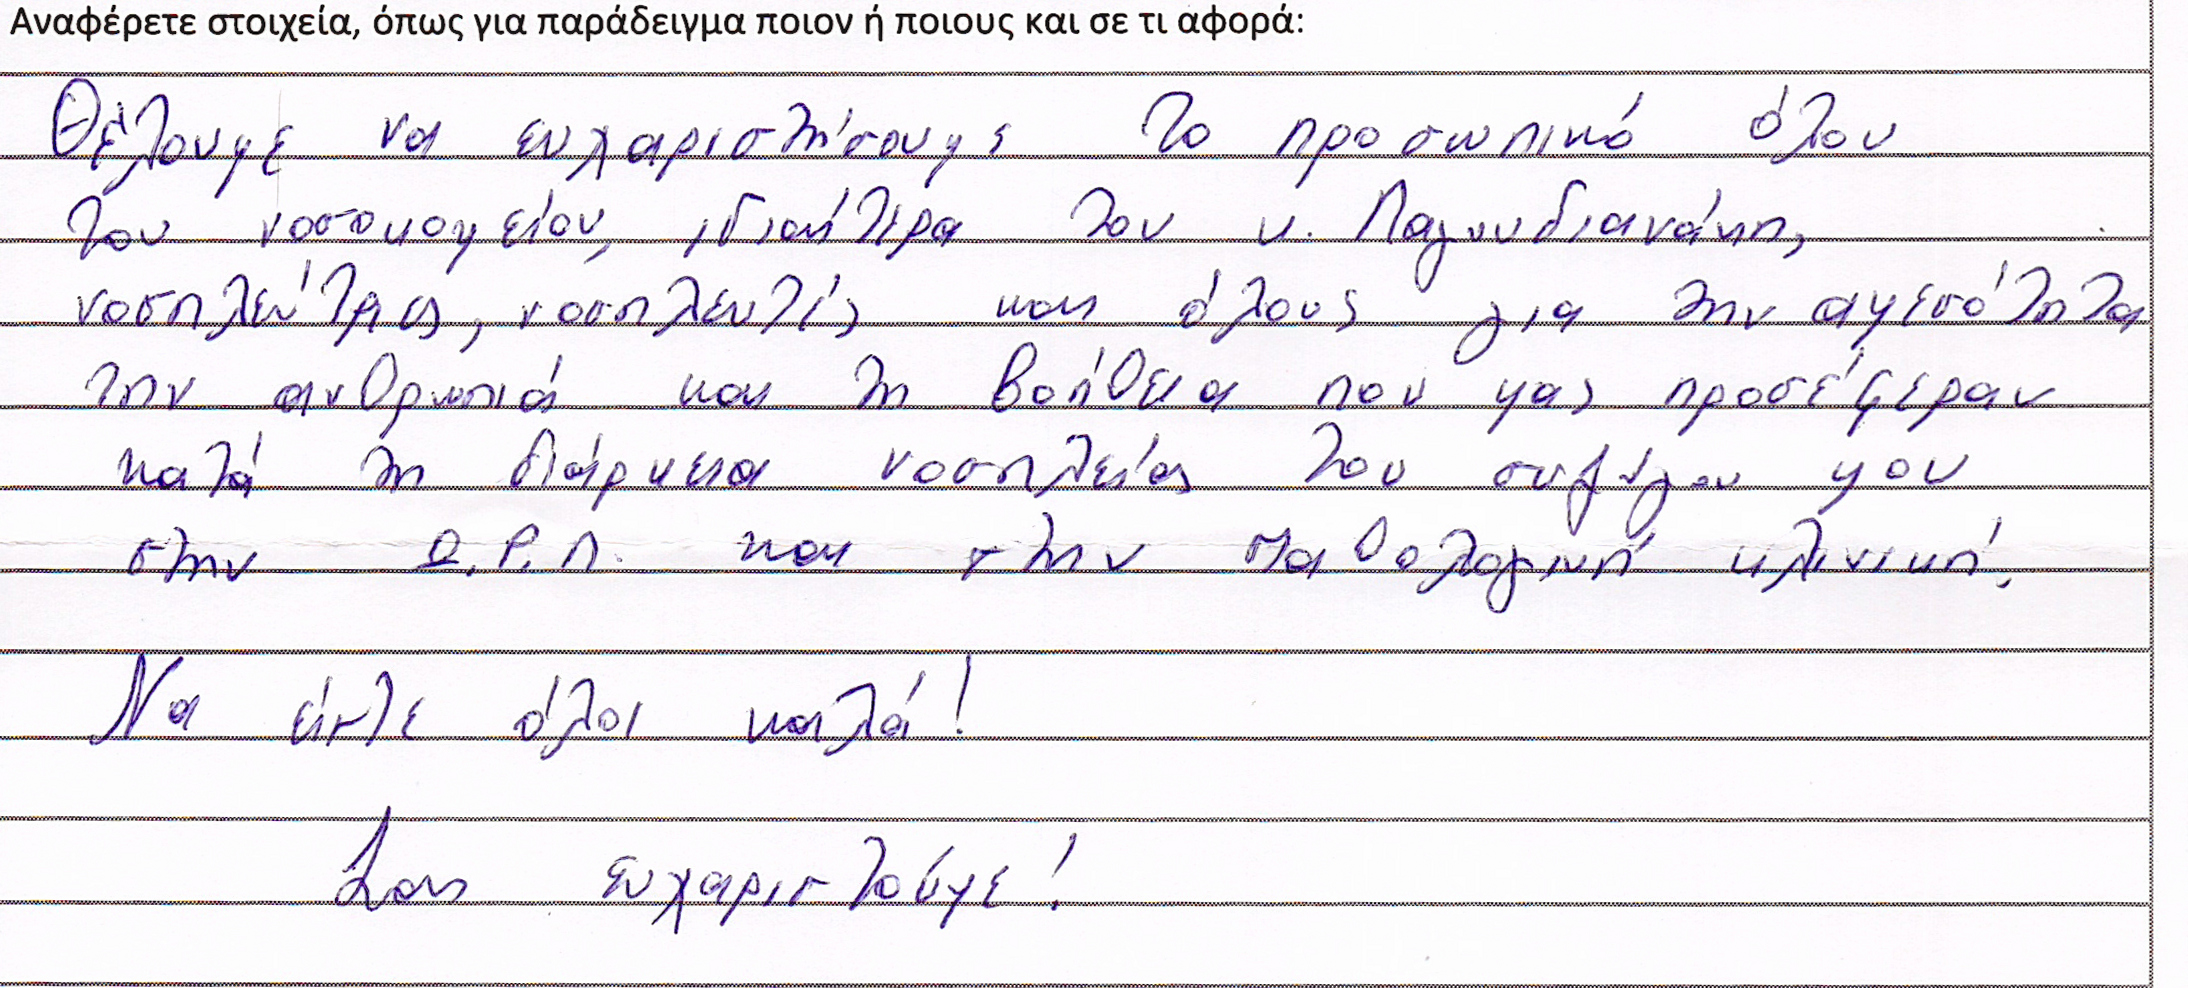 Αναφέρετε στοιχεία, όπως για παράδειγμα ποιον ή ποιους και σε τι αφορά:
Θέλουμε να ευχαριστήσουμε το προσωπικό όλου
του νοσοκομείου, ιδιαίτερα τον κ. Παγουδιανάκη,
νοσηλεύτριες, νοσηλευτές και όλους για την αμεσότητα
την ανθρωπιά και τη βοήθεια που μας προσέφεραν
κατά τη διάρκεια νοσηλείας του συζύγου μου
στην Ω.Ρ.Λ. και στην παθολογική κλινική.
Να είστε όλοι καλά!
Σας ευχαριστούμε!